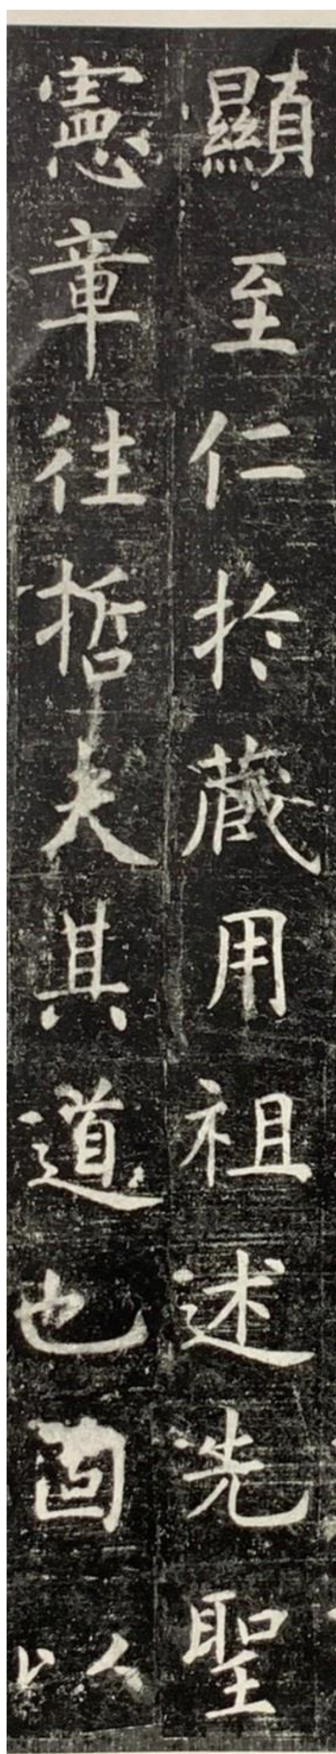 顯至仁於藏用祖述先聖
憲章往哲夫其道也固以